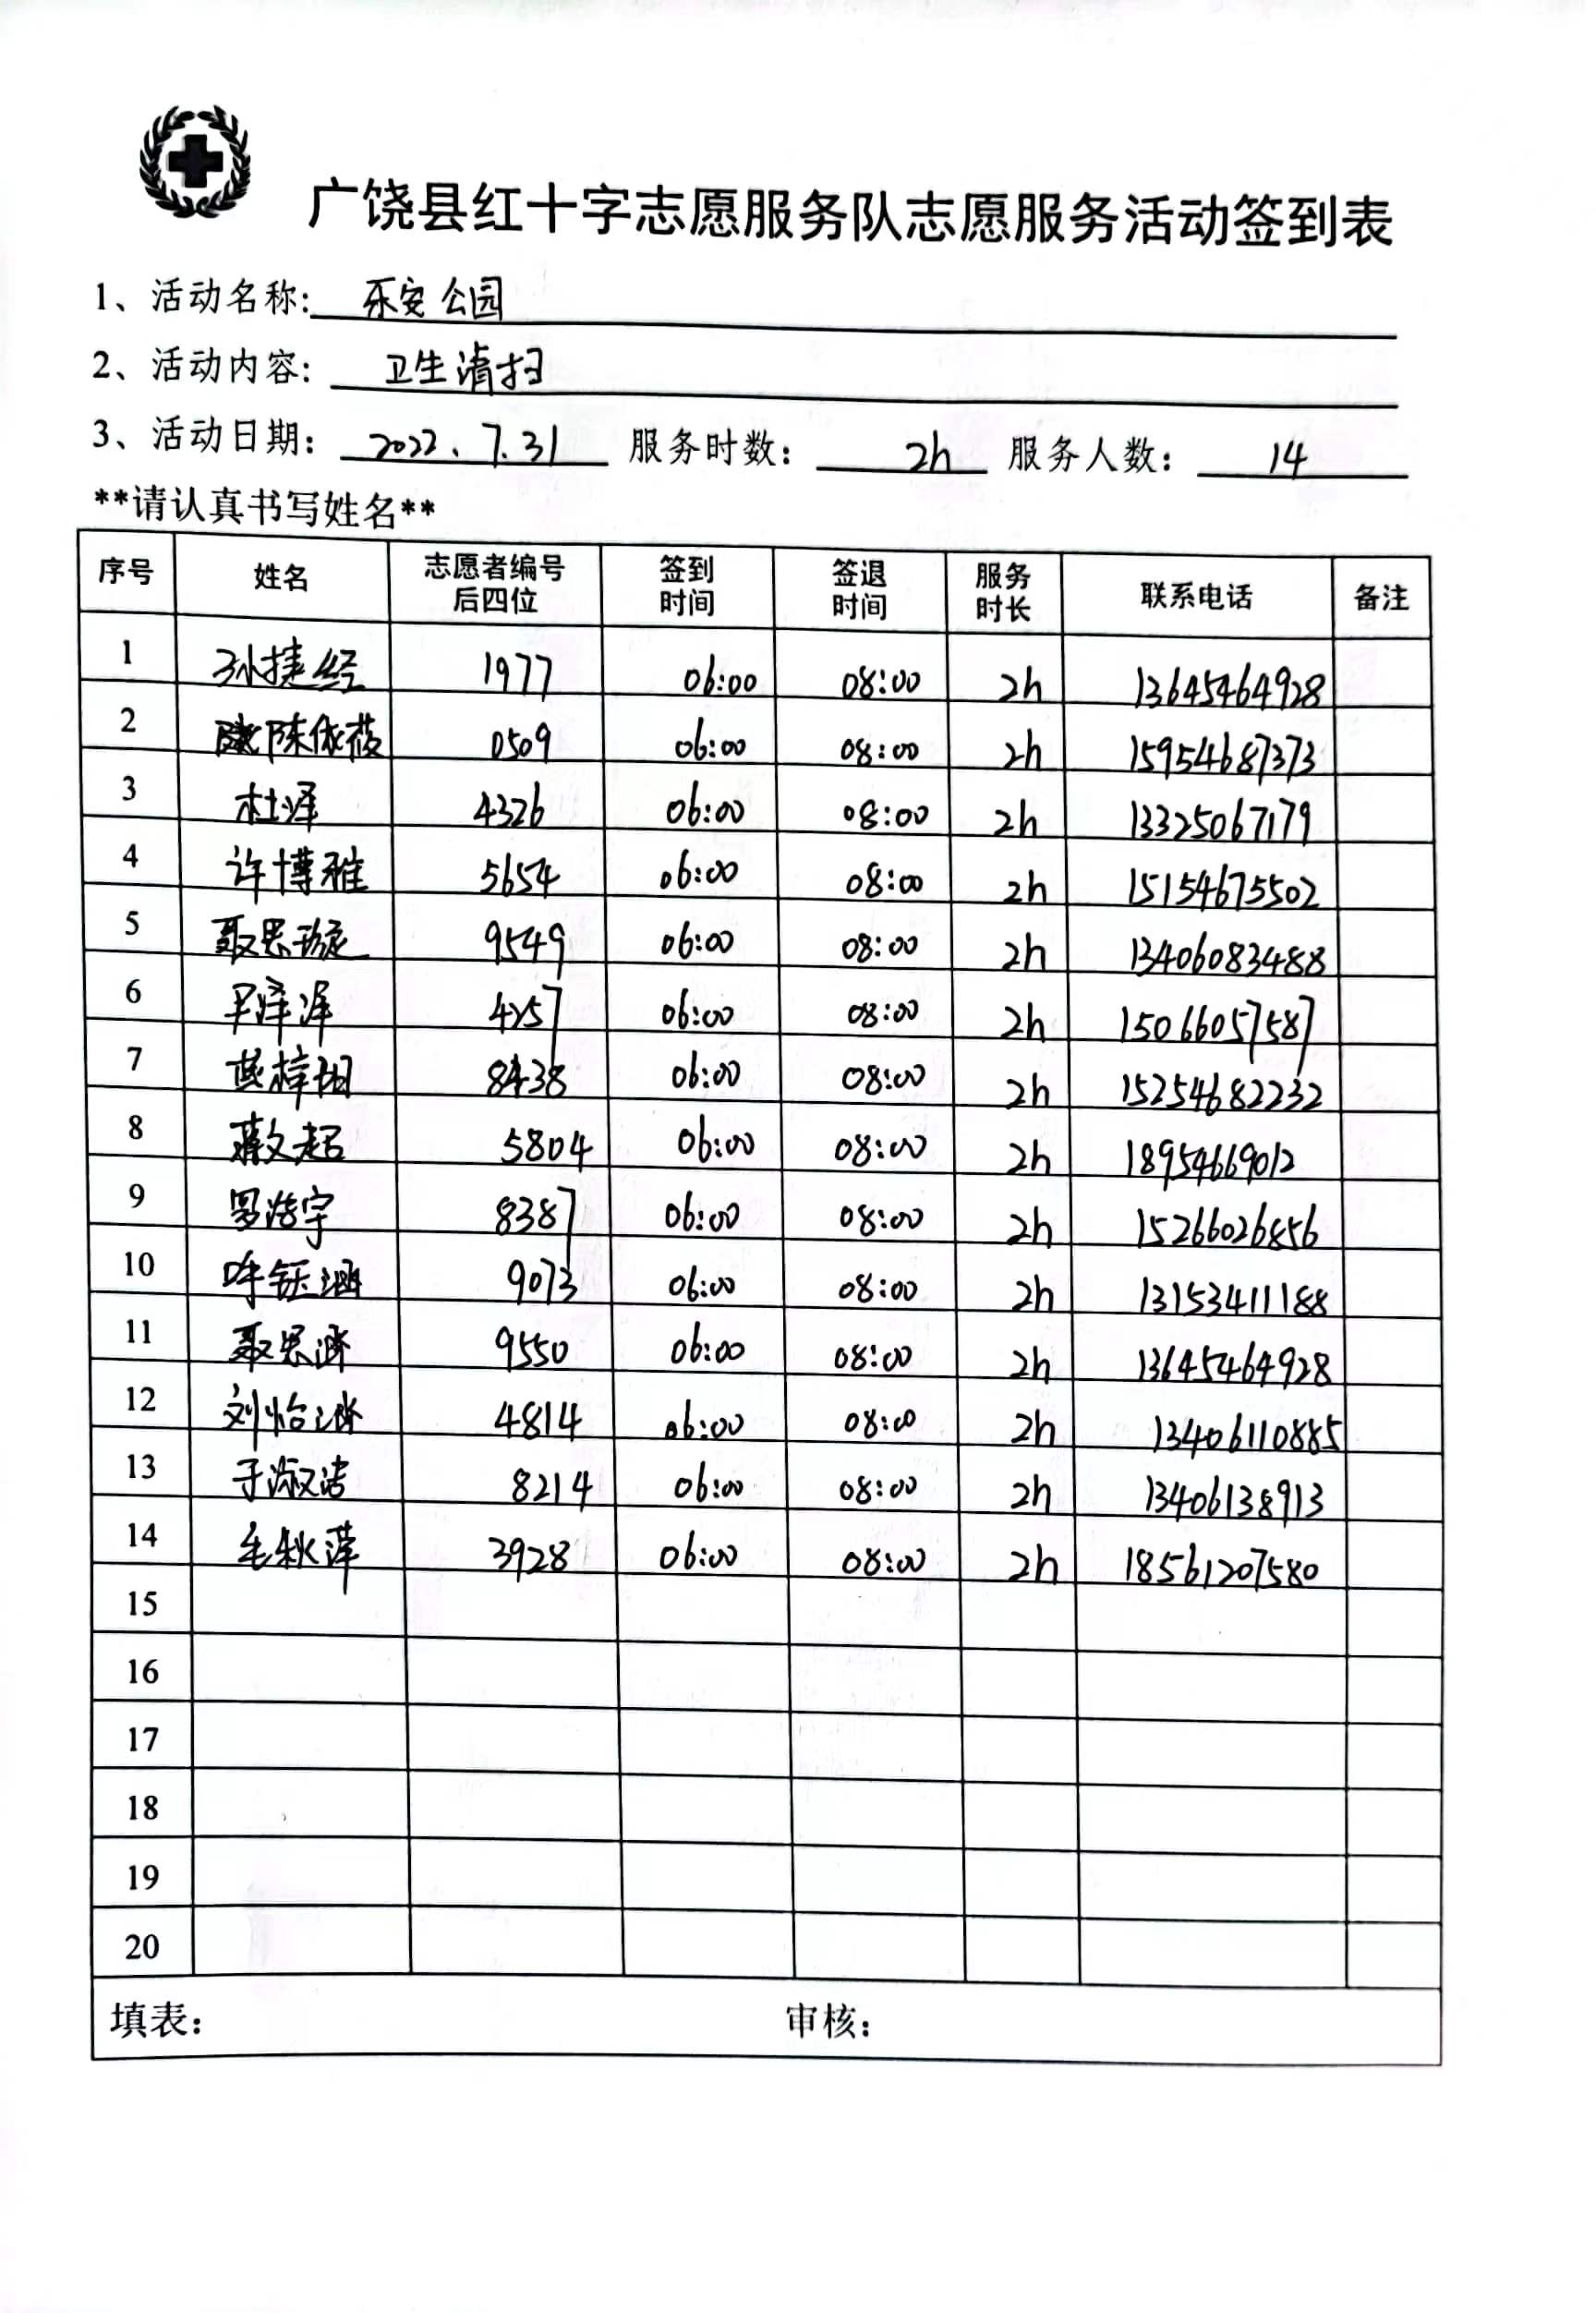 广饶县红十字志愿服务队志愿服务活动签到表
1、活动名称: 乐安公园
2、活动内容: 卫生清扫
3、活动日期: 2022、7.31 服务时数: 2h 服务人数: 14
**请认真书写姓名**
序号 姓名 志愿者编号后四位 签到时间 签退时间 服务时长 联系电话 备注
1 孙捷经 1977 06:00 08:00 2h 13645464928
2 陈依葭 0509 06:00 08:00 2h 15954687373
3 杜泽 4326 06:00 08:00 2h 13325067179
4 许博雅 5654 06:00 08:00 2h 15154675502
5 聂思璇 9549 06:00 08:00 2h 13406083488
6 4257 06:00 08:00 2h 15066057587
7 燕梓阳 8438 06:00 08:00 2h 15254682232
8 蒋文起 5804 06:00 08:00 2h 18954669012
9 罗浩宇 8387 06:00 08:00 2h 15266026856
10 9073 06:00 08:00 2h 13153411188
11 聂思涵 9550 06:00 08:00 2h 13645464928
12 刘怡冰 4814 06:00 08:00 2h 13406110885
13 于淑洁 8214 06:00 08:00 2h 13406138913
14 毛秋萍 3928 06:00 08:00 2h 18561207580
15
16
17
18
19
20
填表: 审核: